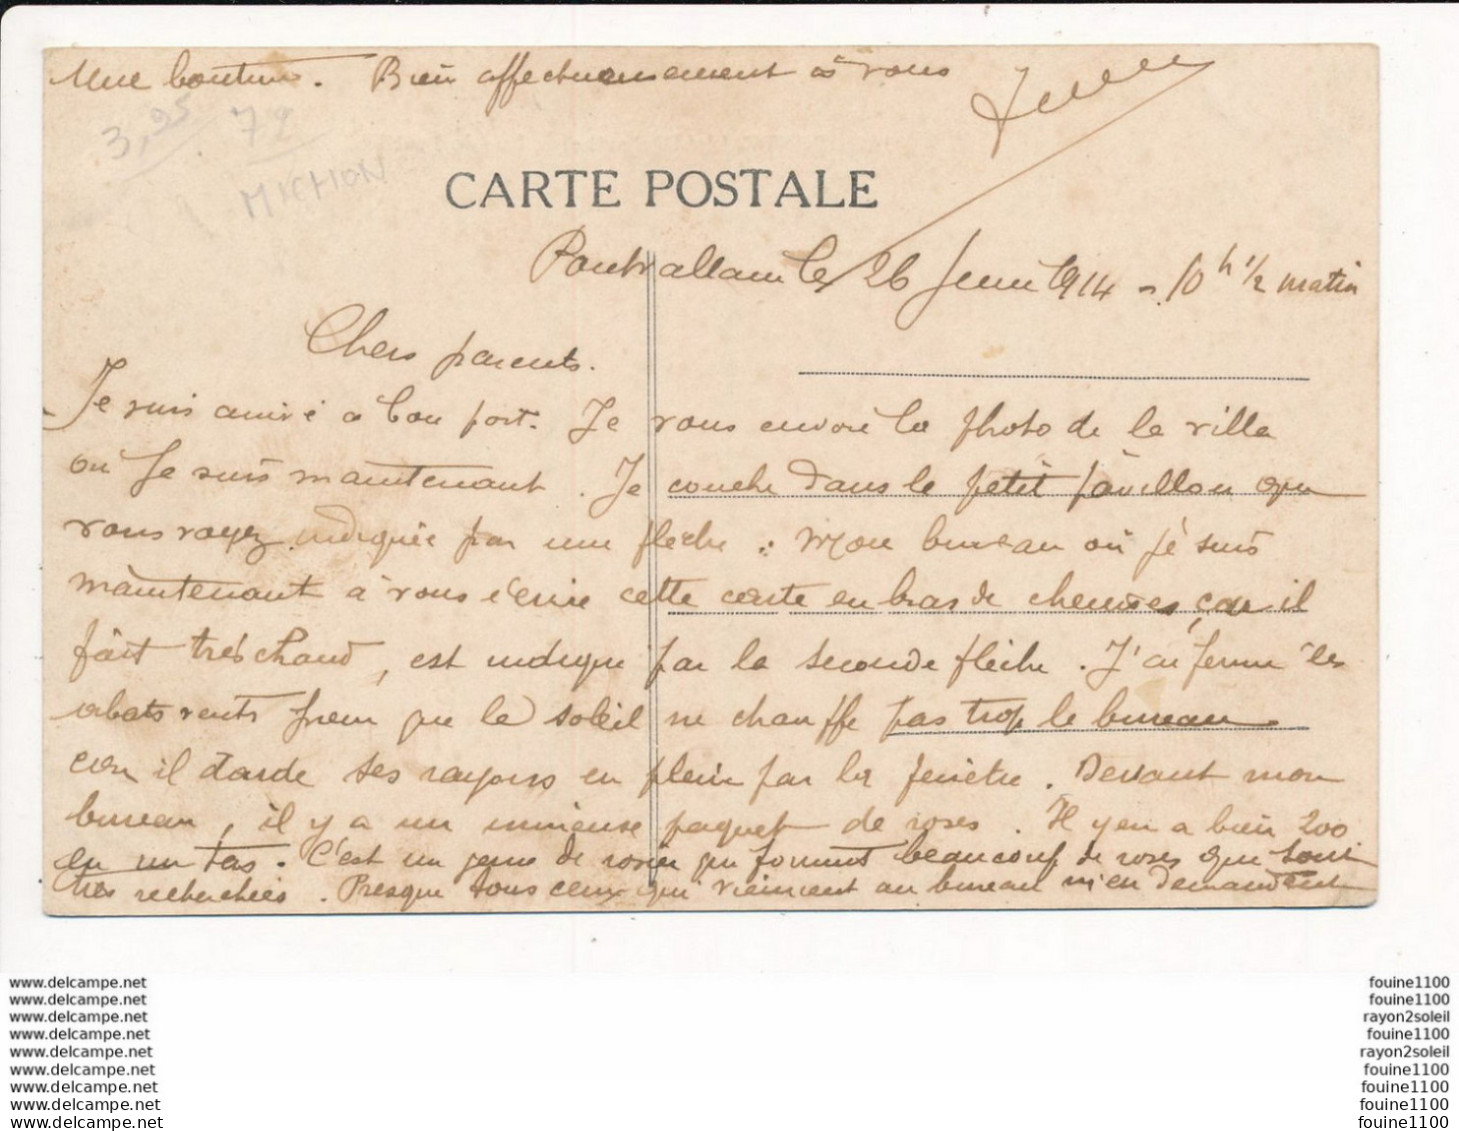 une bouture. Bien affectueusement à vous
3,95 72
MICHON
CARTE POSTALE
Pontvallain le 26 Juin 1914 - 10 h 1/2 matin
Chers parents.
Je suis arrivé à bon port. Je vous envoie la photo de la villa
où je suis maintenant. Je couche dans le petit pavillon que
vous voyez indiquée par une flèche : Mon bureau où je suis
maintenant à vous écrire cette carte en bras de chemises, car il
fait très chaud, est indiqué par la seconde flèche. J'ai fermé les
abats vents pour que le soleil ne chauffe pas trop le bureau
car il darde ses rayons en plein par la fenêtre. Devant mon
bureau, il y a un immense paquet de roses. Il y en a bien 200
en un tas. C'est un genre de rosier qui forment beaucoup de roses que sont
très recherchées. Presque tous ceux qui viennent au bureau m'en demandent
www.delcampe.net fouine1100
www.delcampe.net fouine1100
www.delcampe.net rayon2soleil
www.delcampe.net fouine1100
www.delcampe.net rayon2soleil
www.delcampe.net fouine1100
www.delcampe.net fouine1100
www.delcampe.net fouine1100
www.delcampe.net fouine1100